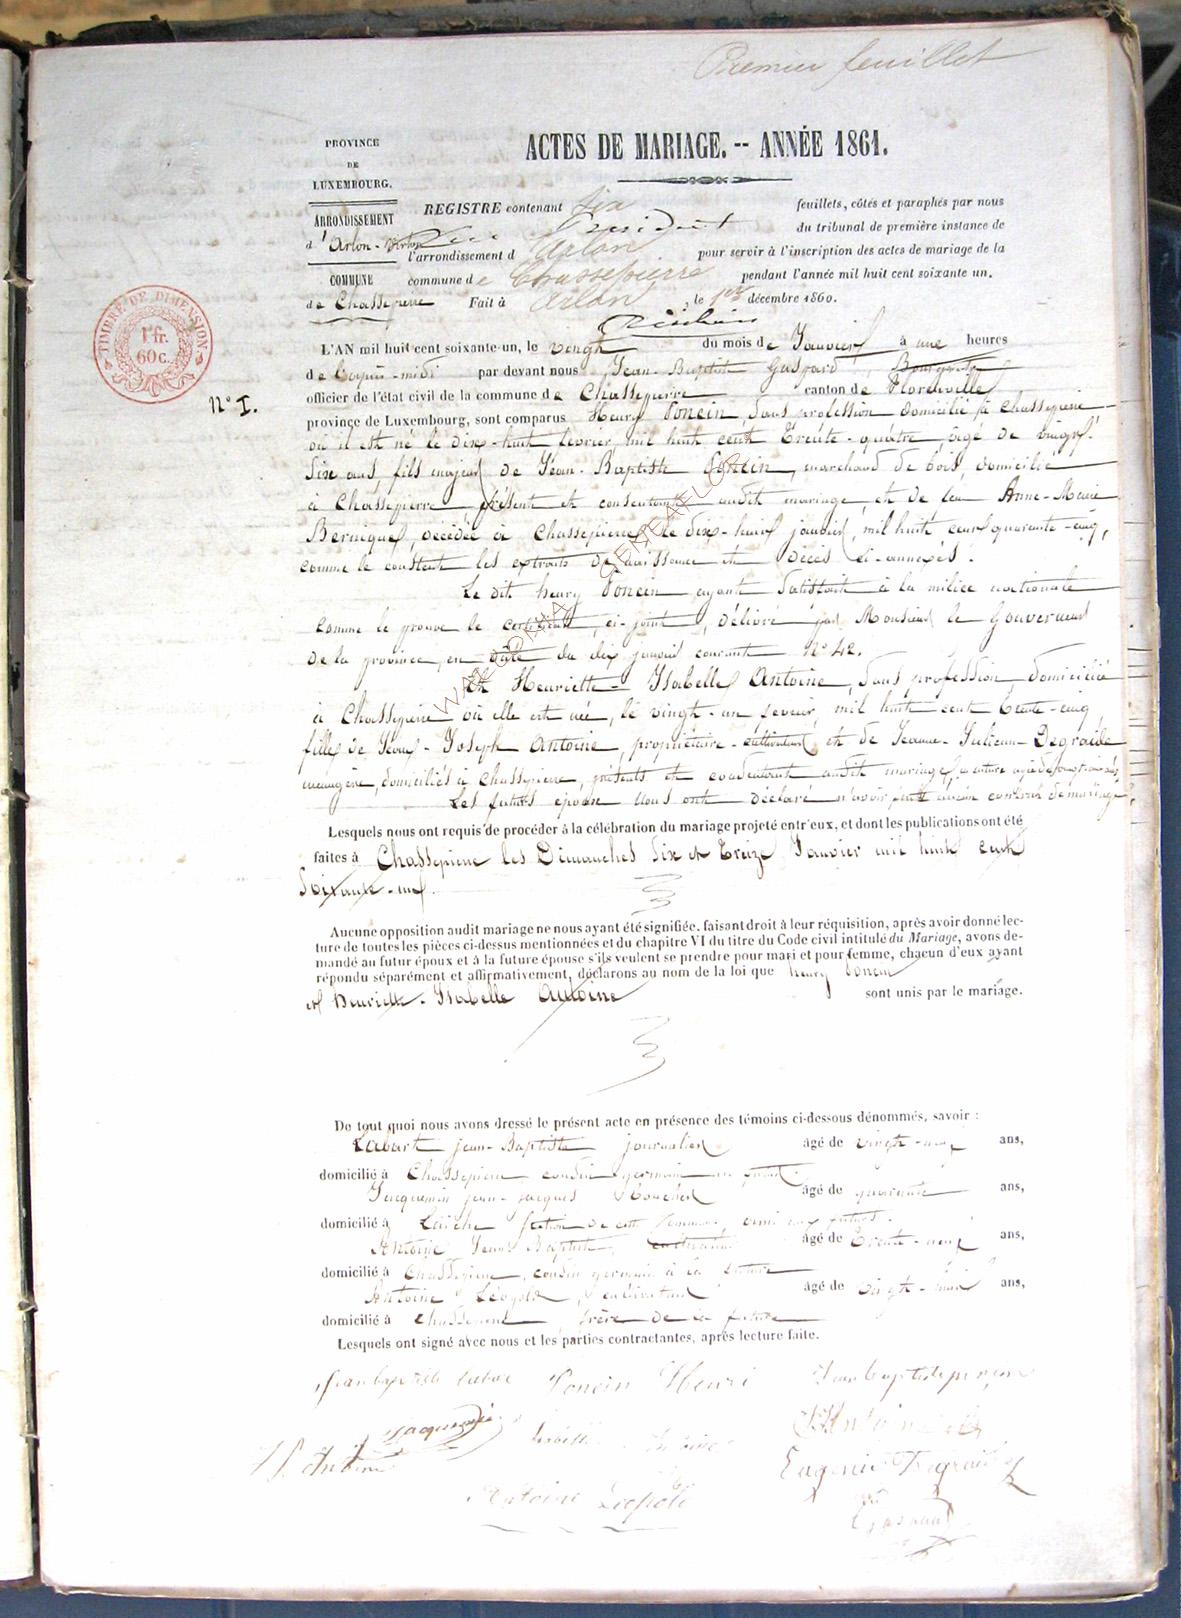 Premier feuillet
PROVINCE
DE
LUXEMBOURG.
ACTES DE MARIAGE. -- ANNÉE 1861.
ARRONDISSEMENT
d'Arlon-Virton
COMMUNE
de Chassepierre
REGISTRE contenant six feuillets, côtés et paraphés par nous
Président du tribunal de première instance de
l'arrondissement d'Arlon pour servir à l'inscription des actes de mariage de la
commune de Chassepierre pendant l'année mil huit cent soixante un.
Fait à Arlon, le 1er décembre 1860.
TIMBRE DE DIMENSION
1 fr.
60 c.
N° 1.
L'AN mil huit cent soixante-un, le vingt du mois de Janvier à une heures
de par devant nous Jean-Baptiste Gaspard, Bourgmestre
officier de l'état civil de la commune de Chassepierre canton de Florenville
province de Luxembourg, sont comparus Henry Poncin, sans profession domicilié à Chassepierre
où il est né le dix-huit fevrier, mil huit cent trente-quatre, âgé de vingt-
six ans, fils majeur de Jean-Baptiste Poncin, marchand de bois, domicilié
à Chassepierre présent et consentant audit mariage et de feu Anne-Marie
décédée à Chassepierre le dix-huit janvier, mil huit cent quarante-cinq,
comme le constent les extraits de naissance et décès ci-annexés.
Le dit henry Poncin ayant satisfait à la milice nationale
comme le prouve le certificat, ci-joint, délivré par Monsieur le Gouverneur
de la province, en date du dix janvier courant N° 42.
Et Henriette-Isabelle Antoine, sans profession, domiciliée
à Chassepierre où elle est née, le vingt-un mil huit cent trente-cinq
fille de Jean-Joseph Antoine, propriétaire-cultivateur et de Jeanne-Julienne Degraide
ménagère, domiciliés à chassepierre, présents et consentant audit mariage,
Les futurs époux nous ont déclaré n'avoir fait aucun contrat de mariage,
Lesquels nous ont requis de procéder à la célébration du mariage projeté entr'eux, et dont les publications ont été
faites à Chassepierre les Dimanches six et treize Janvier mil huit cent
soixante-un.
Aucune opposition audit mariage ne nous ayant été signifiée, faisant droit à leur réquisition, après avoir donné lec-
ture de toutes les pièces ci-dessus mentionnées et du chapitre VI du titre du Code civil intitulé du Mariage, avons de-
mandé au futur époux et à la future épouse s'ils veulent se prendre pour mari et pour femme, chacun d'eux ayant
répondu séparément et affirmativement, déclarons au nom de la loi que henry Poncin
et Henriette-Isabelle Antoine sont unis par le mariage.
De tout quoi nous avons dressé le présent acte en présence des témoins ci-dessous dénommés, savoir :
Labart jean-Baptiste journalier âgé de vingt-neuf ans,
domicilié à Chassepierre cousin germain au futur.
Jacquemin jean-jacques âgé de quarante ans,
domicilié à Laiche section de cette commune, ami aux futurs.
Antoine Jean Baptiste, cultivateur âgé de trente-neuf ans,
domicilié à Chassepierre, cousin germain à la future
Antoine Léopold, cultivateur âgé de vingt-huit ans,
domicilié à chassepierre, frère de la future
Lesquels ont signé avec nous et les parties contractantes, après lecture faite.
Jean baptiste labar Poncin Henri Jean baptiste poncin
Jacquemin
Antoine
Antoine Léopold
Gaspard
WALLONIA GENEAELOR